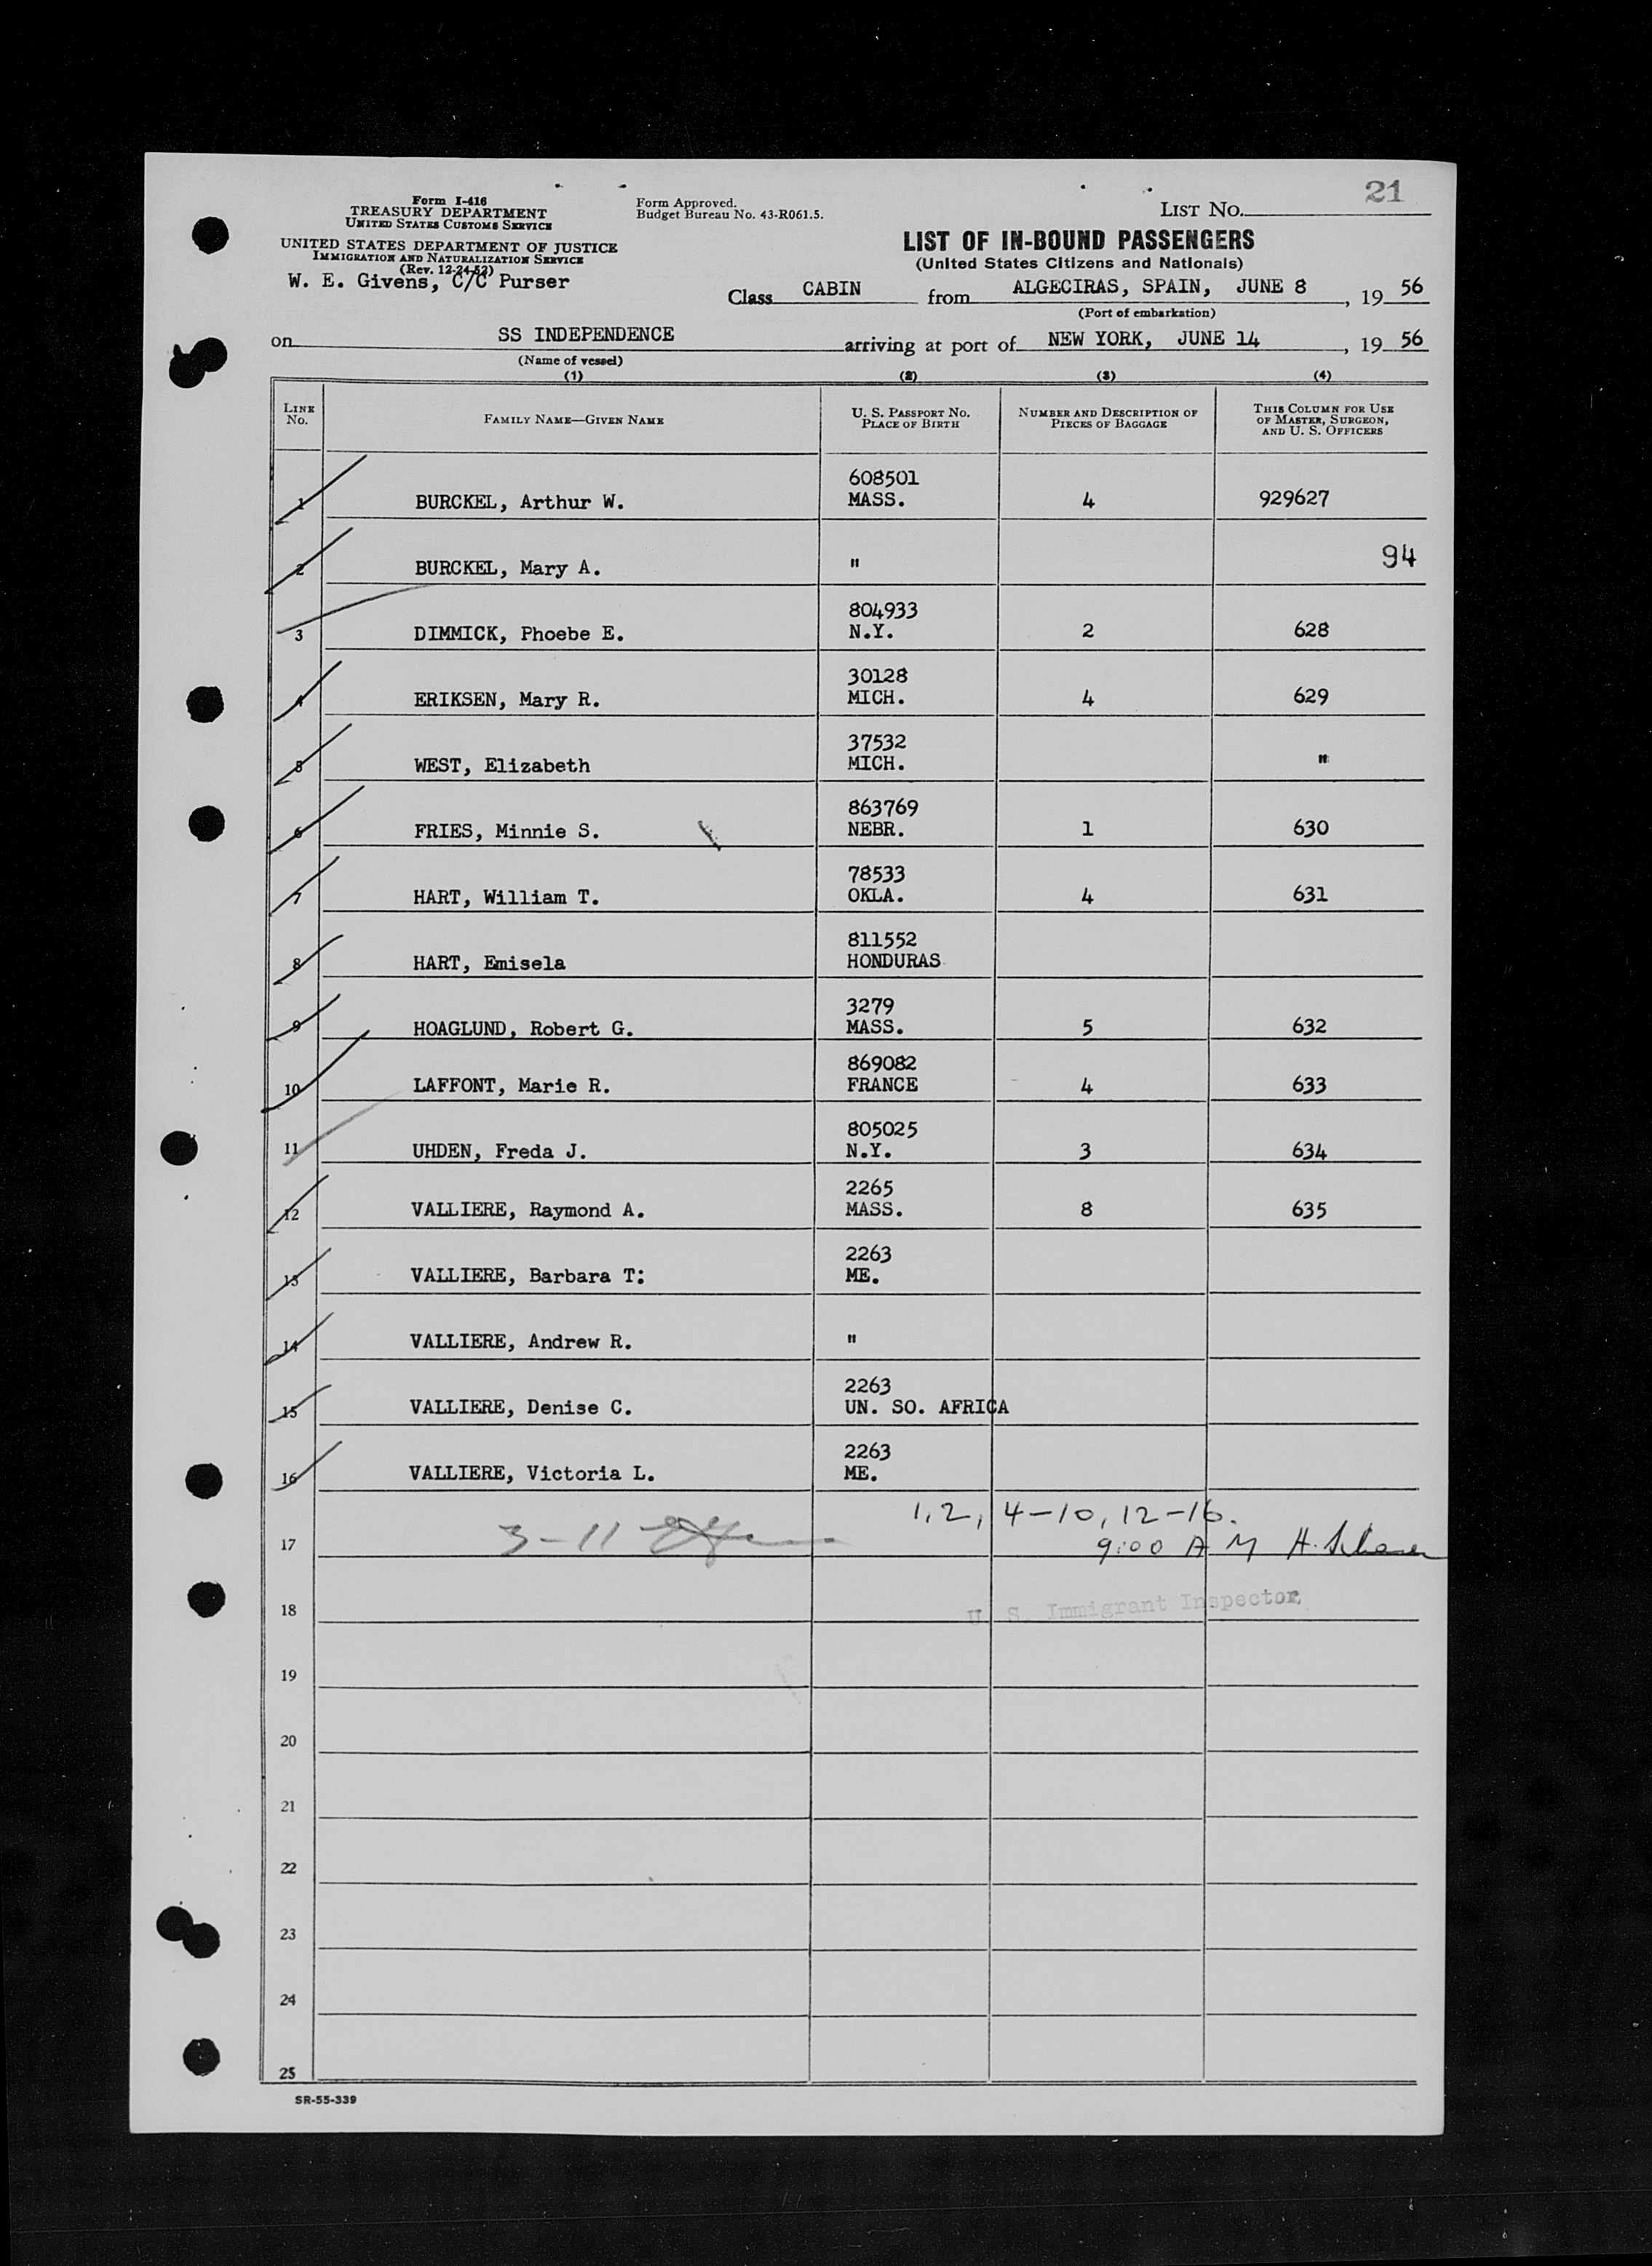 21
Form I-416
TREASURY DEPARTMENT
UNITED STATES CUSTOMS SERVICE
UNITED STATES DEPARTMENT OF JUSTICE
IMMIGRATION AND NATURALIZATION SERVICE
(Rev. 12-24-52)
W. E. Givens, C/C Purser
Form Approved.
Budget Bureau No. 43-R061.5.
LIST NO.
LIST OF IN-BOUND PASSENGERS
(United States Citizens and Nationals)
Class CABIN from ALGECIRAS, SPAIN, JUNE 8, 19 56
(Port of embarkation)
on SS INDEPENDENCE arriving at port of NEW YORK, JUNE 14, 19 56
(Name of vessel)
(1) (2) (3) (4)
LINE NO. FAMILY NAME—GIVEN NAME U. S. PASSPORT NO. PLACE OF BIRTH NUMBER AND DESCRIPTION OF PIECES OF BAGGAGE THIS COLUMN FOR USE OF MASTER, SURGEON, AND U. S. OFFICERS
608501
1 BURCKEL, Arthur W. MASS. 4 929627
2 BURCKEL, Mary A. " 94
804933
3 DIMMICK, Phoebe E. N.Y. 2 628
30128
4 ERIKSEN, Mary R. MICH. 4 629
37532
5 WEST, Elizabeth MICH. "
863769
6 FRIES, Minnie S. NEBR. 1 630
78533
7 HART, William T. OKLA. 4 631
811552
8 HART, Emisela HONDURAS
3279
9 HOAGLUND, Robert G. MASS. 5 632
869082
10 LAFFONT, Marie R. FRANCE 4 633
805025
11 UHDEN, Freda J. N.Y. 3 634
2265
12 VALLIERE, Raymond A. MASS. 8 635
2263
13 VALLIERE, Barbara T: ME.
14 VALLIERE, Andrew R. "
2263
15 VALLIERE, Denise C. UN. SO. AFRICA
2263
16 VALLIERE, Victoria L. ME.
1,2, 4-10, 12-16.
17 3-11 9:00 A M H.
18 U. S. Immigrant Inspector
19
20
21
22
23
24
25
SR-55-339